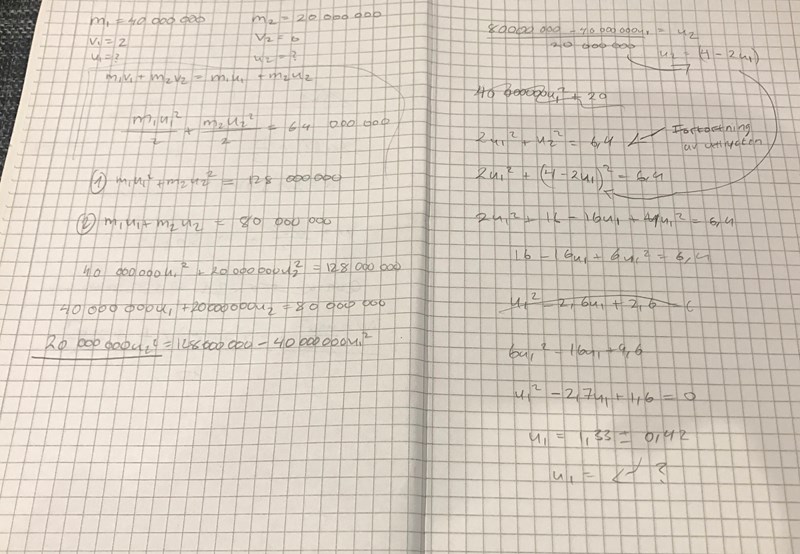 m₁ = 40 000 000 m₂ = 20 000 000
v₁ = 2 v₂ = 0
u₁ = ? u₂ = ?
m₁v₁ + m₂v₂ = m₁u₁ + m₂u₂
m₁u₁²/2 + m₂u₂²/2 = 64 000 000
① m₁u₁² + m₂u₂² = 128 000 000
② m₁u₁ + m₂u₂ = 80 000 000
40 000 000u₁² + 20 000 000u₂² = 128 000 000
40 000 000u₁ + 20000000u₂ = 80 000 000
20 000 000u₂² = 128000000 - 40 000000u₁²
80000 000 - 40 000 000u₁ / 20 000 000 = u₂
u₂ = (4 - 2u₁)
40 000000u₁² + 20
2u₁² + u₂² = 6,4 Förkortning
av
2u₁² + (4 - 2u₁)² = 6,4
2u₁² + 16 - 16u₁ + 4u₁² = 6,4
16 - 16u₁ + 6u₁² = 6,4
u₁² - 2,6u₁ + 2,6 = 6
6u₁² - 16u₁ + 9,6
u₁² - 2,7u₁ + 1,6 = 0
u₁ = 1,33 ± 0,42
u₁ = ?